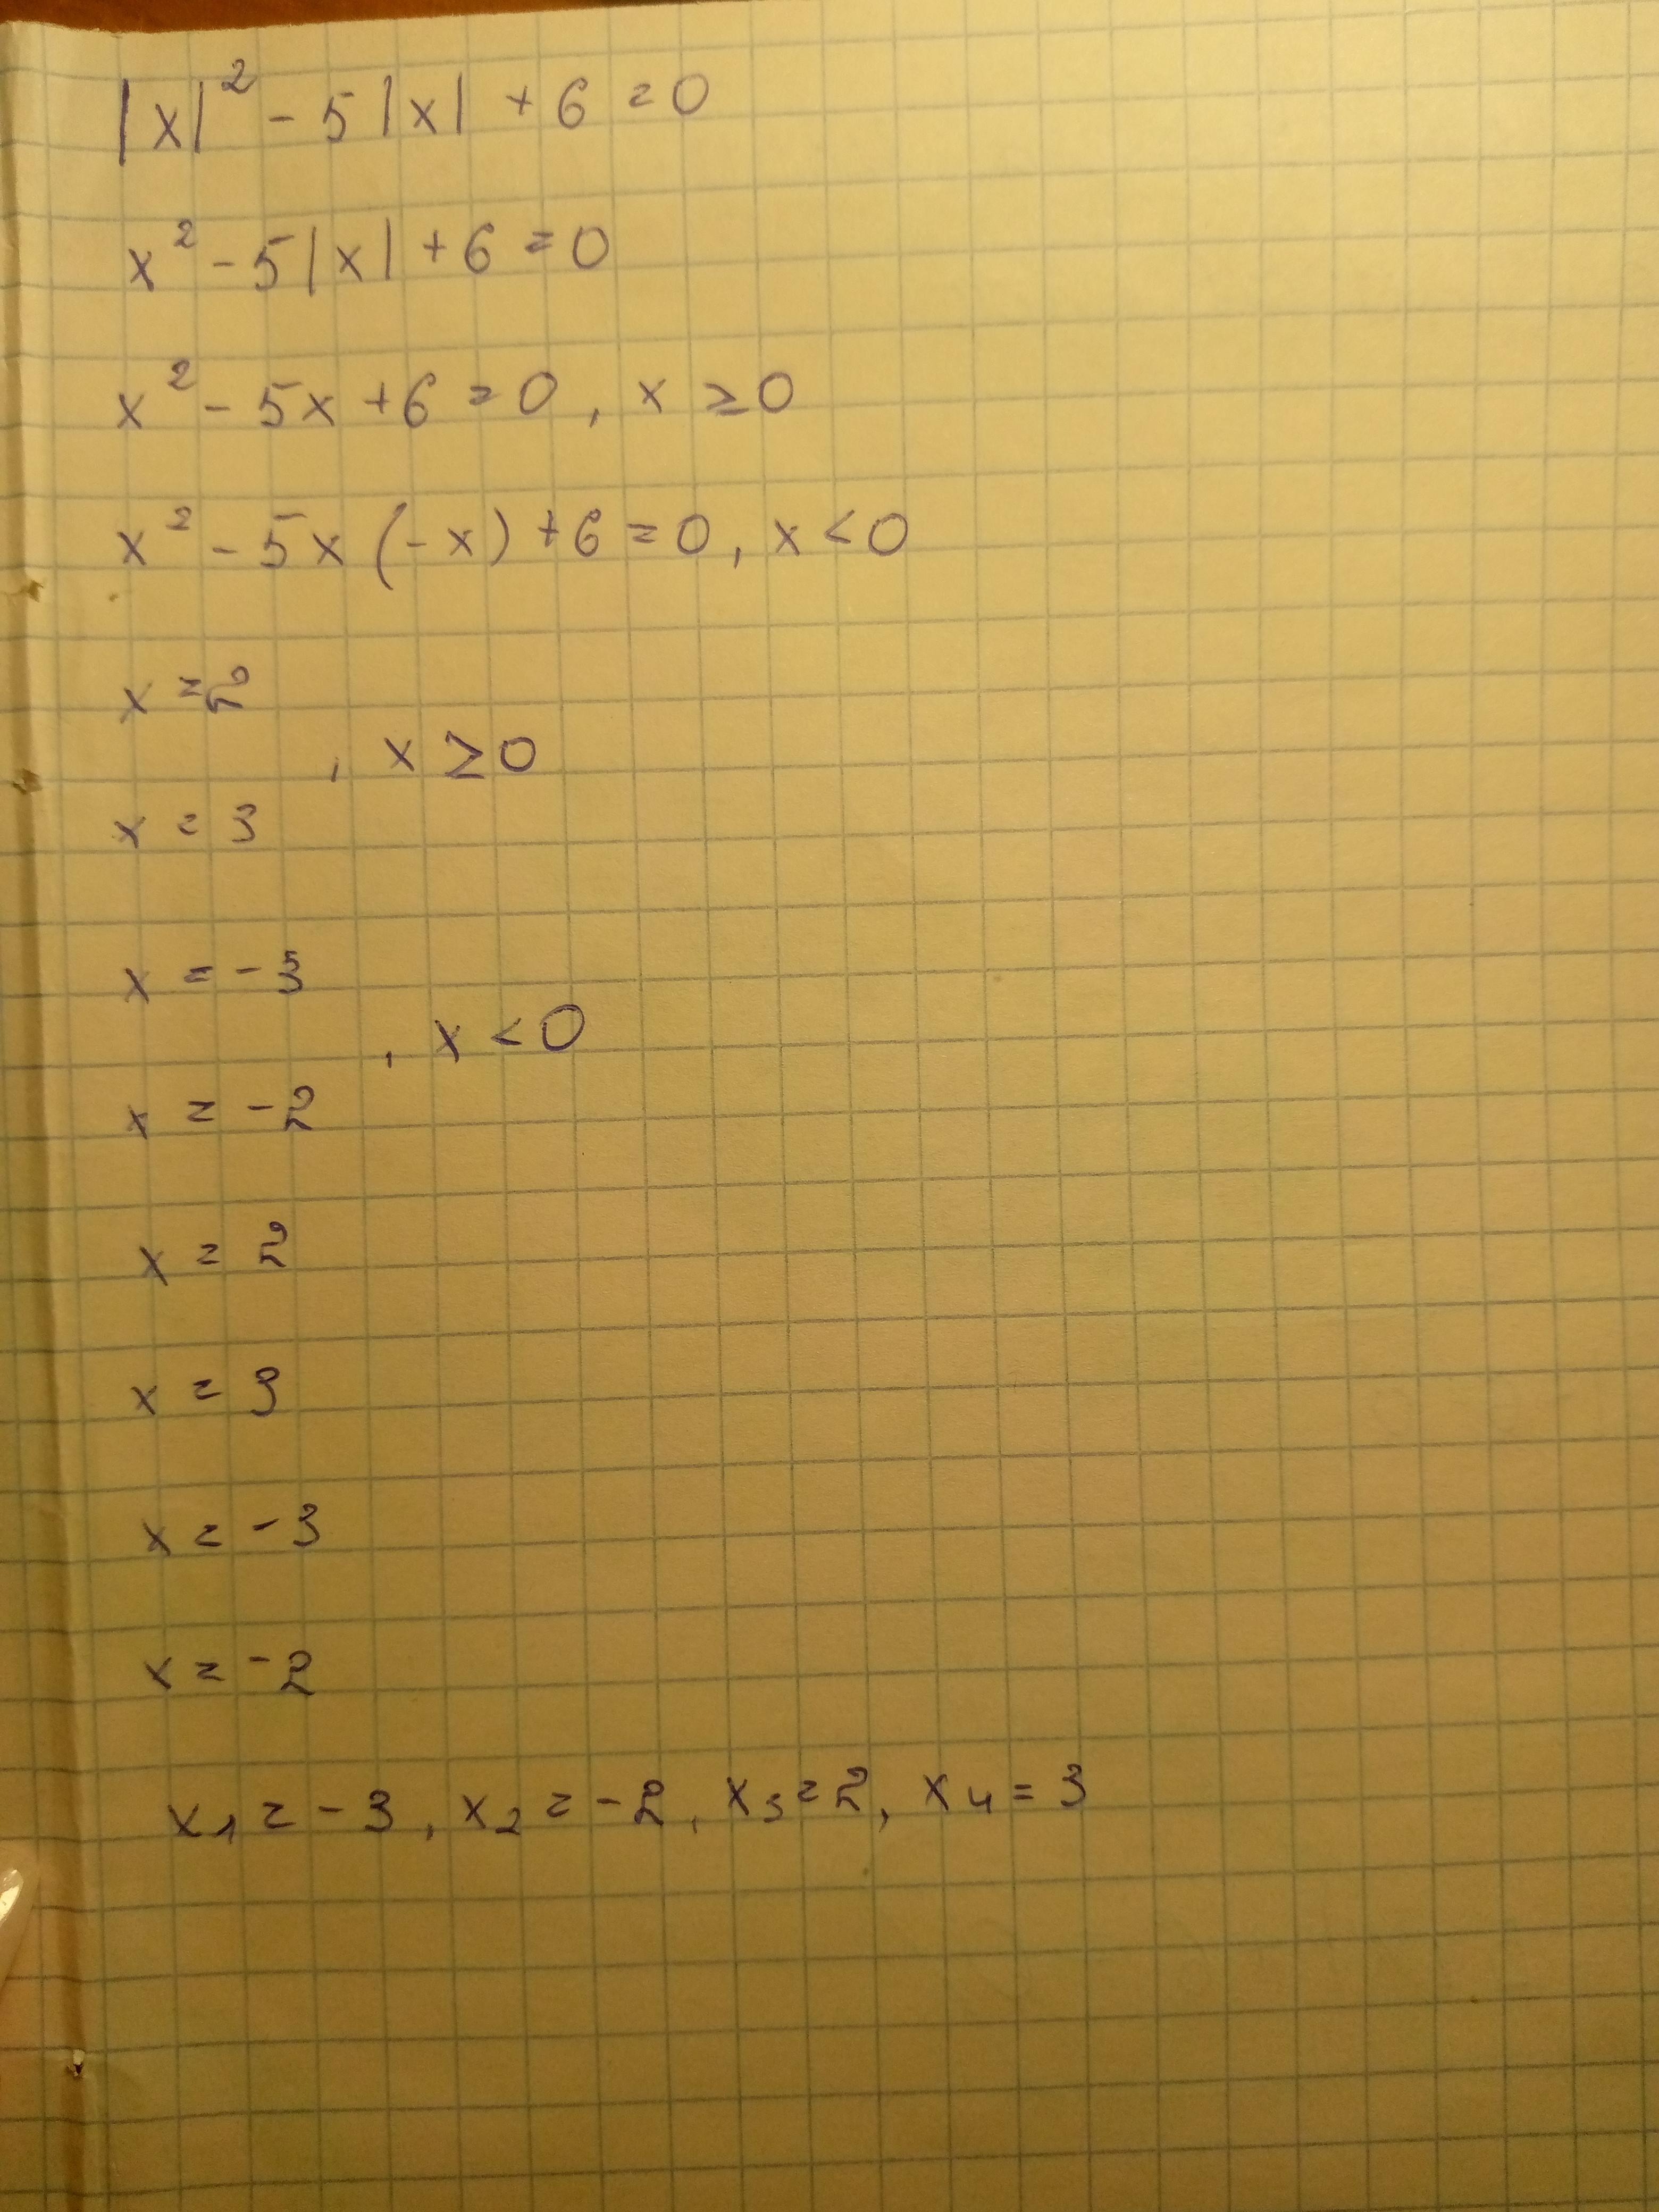 |x|² - 5|x| + 6 = 0
x² - 5|x| + 6 = 0
x² - 5x + 6 = 0, x ≥ 0
x² - 5x(-x) + 6 = 0, x < 0
x = 2
, x ≥ 0
x = 3
x = -3
, x < 0
x = -2
x = 2
x = 3
x = -3
x = -2
x₁ = -3, x₂ = -2, x₃ = 2, x₄ = 3